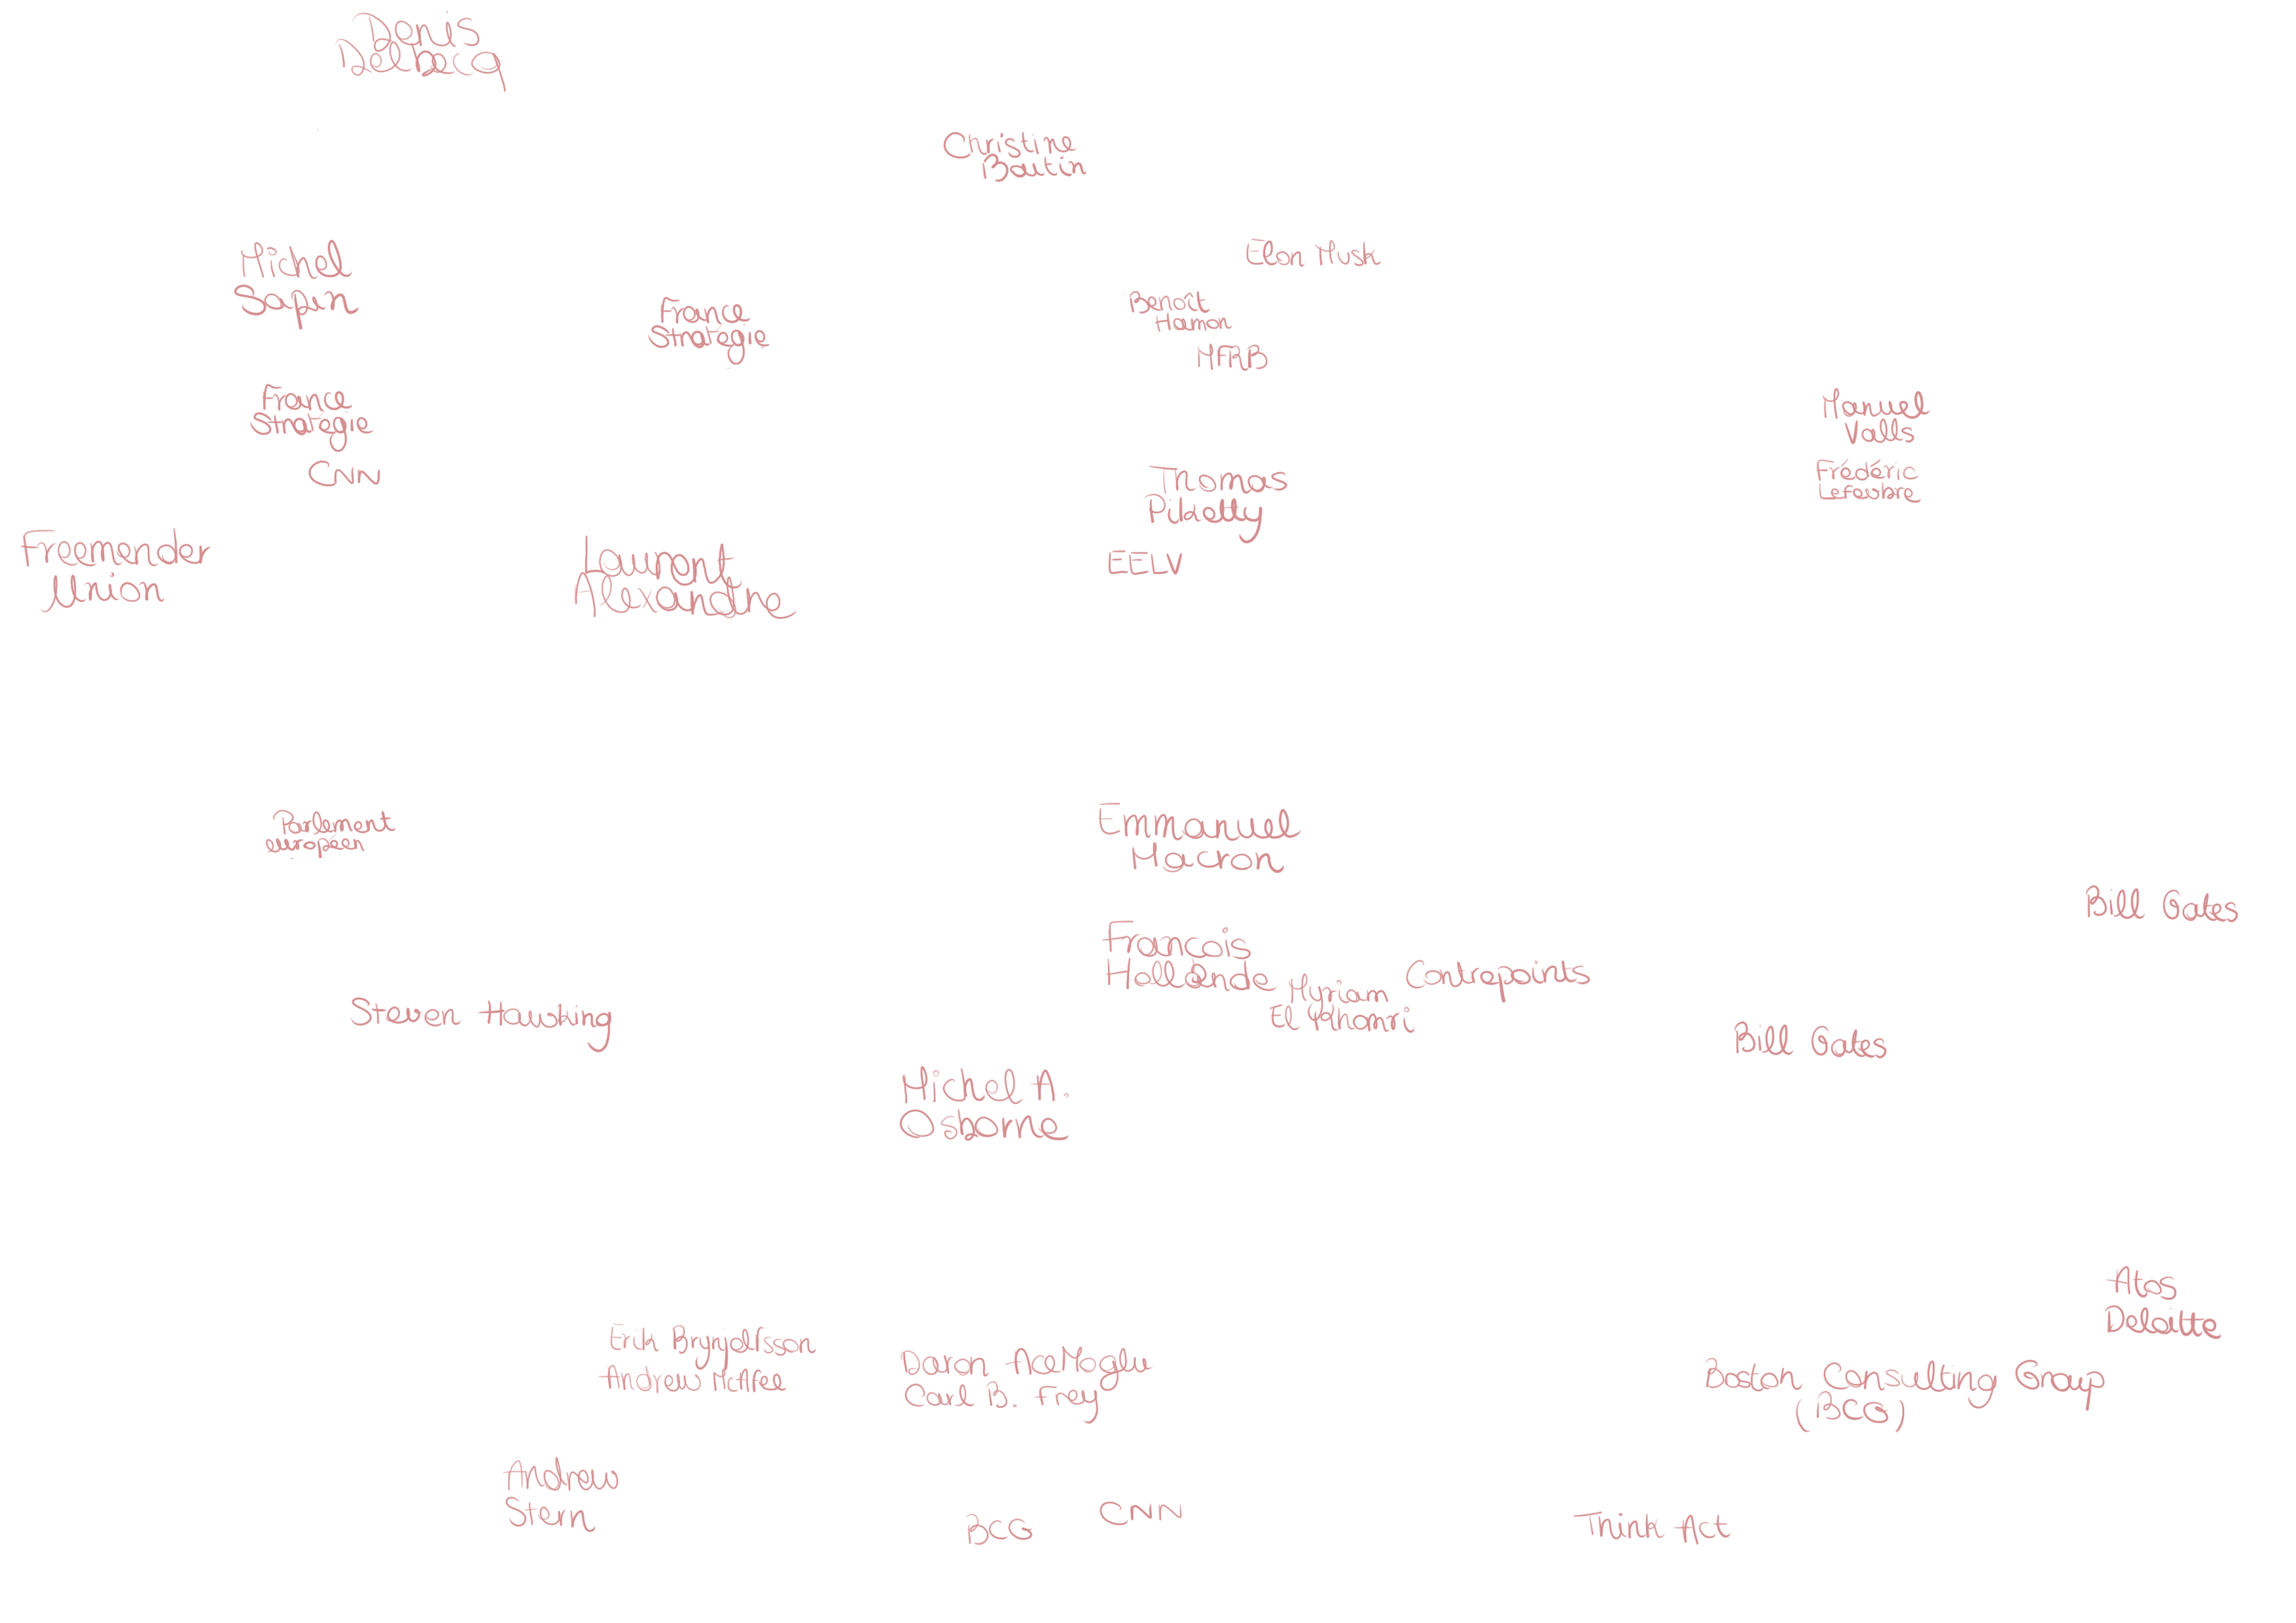 Denis
Delbecq
Christine
Boutin
Elon Musk
Michel
Sapin
France
Stratégie
Benoît
Hamon
MFRB
France
Stratégie
CNN
Manuel
Valls
Frédéric
Lefevbre
Thomas
Piketty
EELV
Freemender
Union
Laurent
Alexandre
Parlement
européen
Emmanuel
Macron
Bill Gates
Francois
Hollande
Myriam
El Khomri
Contrepoints
Steven Hawking
Bill Gates
Michel A.
Osborne
Atos
Deloitte
Erik Brynjolfsson
Andrew McAfee
Daron AceMoglu
Carl B. Frey
Boston Consulting Group
(BCG)
Andrew
Stern
BCG
CNN
Think Act